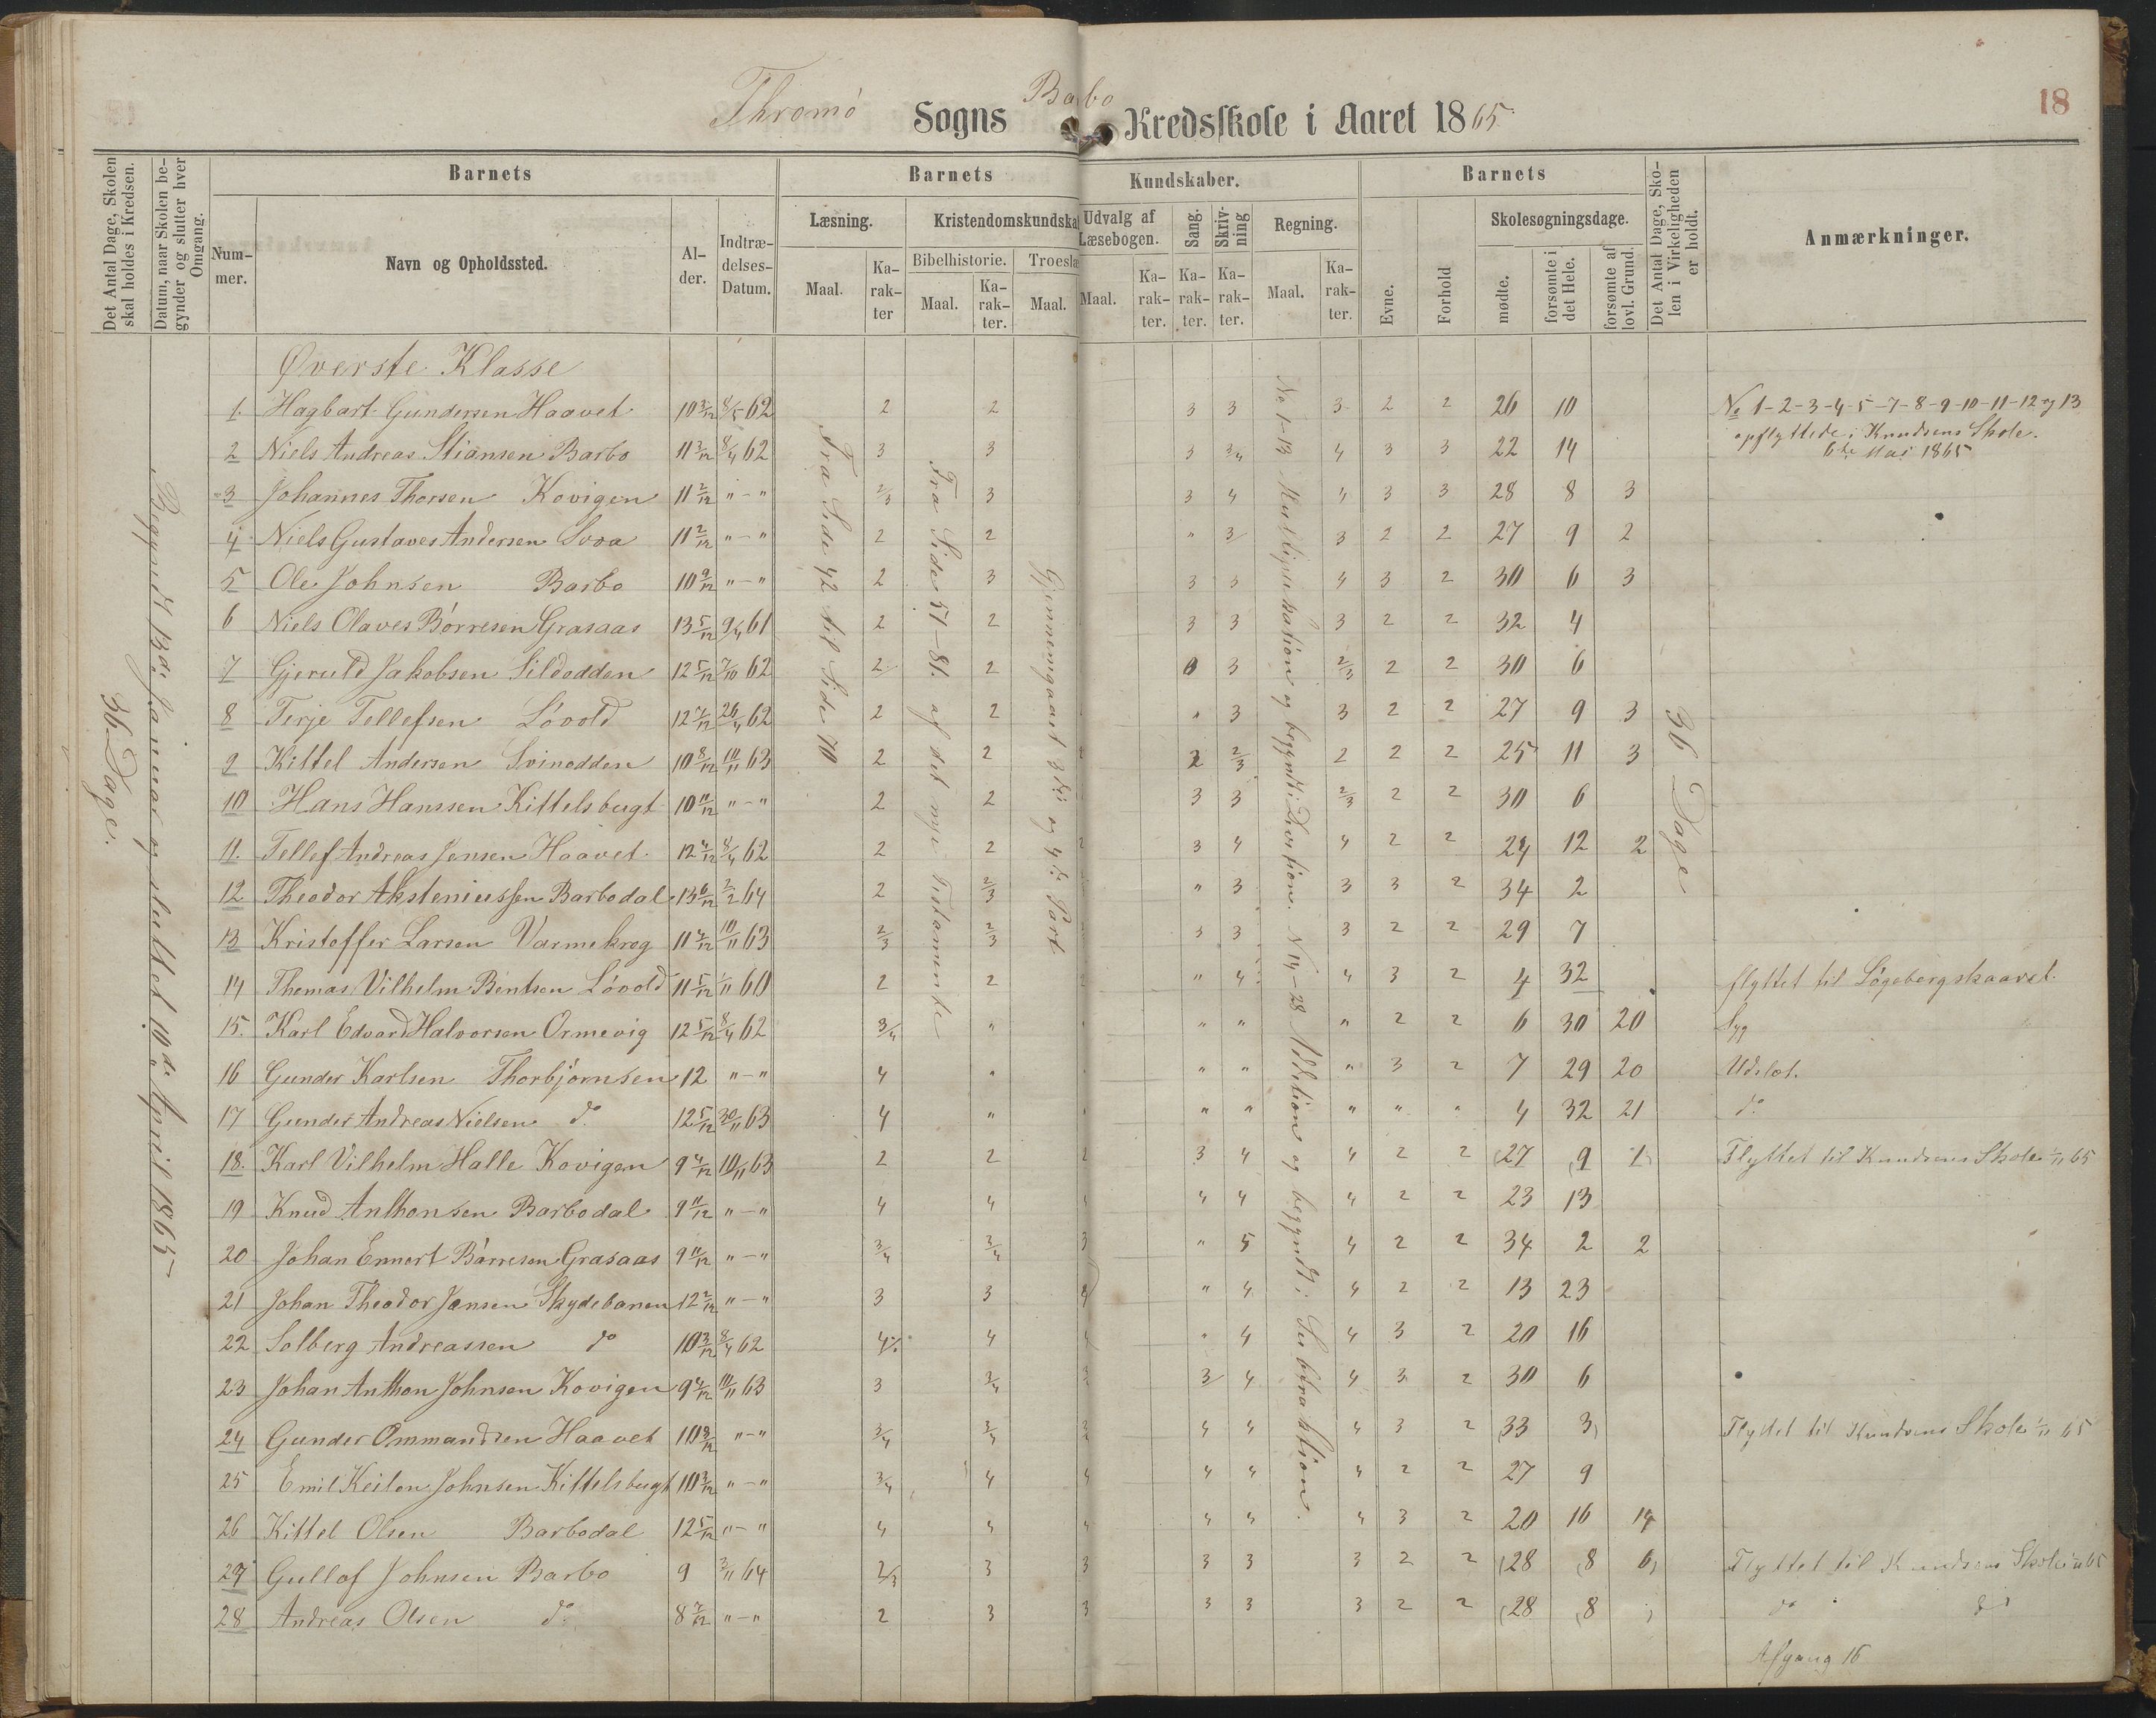 Thromø Sogns Barbo Kredsskole i Aaret 1865
18
Det Antal Dage, Skolen skal holdes i Kredsen.
Datum, naar Skolen begynder og slutter hver Omgang.
Barnets
Nummer.
Navn og Opholdssted.
Alder.
Indtrædelses-Datum.
Barnets Kundskaber.
Læsning.
Maal.
Karakter
Kristendomskundska
Bibelhistorie.
Maal.
Karakter.
Troeslæ
Maal.
Udvalg af Læsebogen.
Maal.
Karakter.
Sang.
Karakter.
Skrivning
Karakter.
Regning.
Maal.
Karakter.
Barnets
Evne.
Forhold
Skolesøgningsdage.
mødte.
forsømte i det Hele.
forsømte af lovl. Grund.
Det Antal Dage, Skolen i Virkeligheden er holdt.
Anmærkninger.
36 Dage.
Begyndt 13de Januar og sluttet 10de April 1865
Fra Side 42 til Side 70
Fra Side 51-81. af det nye Testamente
Gjennemgaaet 3die og 4de Part
No 1-13 Multiplikation og begyndt i Division. N 14-28 Addition og begyndt i Subtraktion.
36 Dage
Øverste Klasse
1. Hagbart Gundersen Haavet 10 3/12 8/5 62 2 2 3 3 3 2 2 26 10 No 1-2-3-4-5-7-8-9-10-11-12 og 13
opflyttede i Knudsens Skole.
6te Mai 1865
2 Niels Andreas Stiansen Barbo 11 3/12 8/4 62 3 3 3 3/4 4 3 3 22 14
3 Johannes Thorsen Kovigen 11 2/12 "-" 2/3 3 3 4 4 3 3 28 8 3
4 Niels Gustaves Andersen 11 2/12 "-" 2 2 " 3 3 2 2 27 9 2
5 Ole Johnsen Barbo 10 9/12 "-" 2 3 3 3 4 3 2 30 6 3
6 Niels Olaves Børresen Grasaas 13 5/12 9/4 61 2 2 3 3 3 2 2 32 4
7 Gjeruld Jakobsen Sildodden 12 5/12 7/10 62 2 2 3 2/3 2 2 30 6
8 Terje Tellefsen Løvold 12 7/12 26/4 62 2 2 " 3 3 2 2 27 9 3
9 Kittel Andersen Svinodden 10 8/12 10/11 63 2 2 2 2/3 2 2 2 25 11 3
10 Hans Hanssen Kittelsbugt 10 11/12 "-" 2 2 3 3 2/3 2 2 30 6
11. Tellef Andreas Jensen Haavet 12 4/12 8/4 62 2 2 2 3 4 4 2 2 24 12 2
12 Theodor Aksteniussen Barbodal 13 6/12 2/2 64 2 2/3 " 3 3 3 2 34 2
13 Kristoffer Larsen Varmekrog 11 4/12 10/11 63 2/3 2/3 3 3 3 2 2 29 7
14 Thomas Vilhelm Bentsen Løvold 11 5/12 1/11 60 2 2 2 " 4 4 3 2 4 32 flyttet til Løgebergskaaret
15. Karl Edvard Halvorsen Ormevig 12 5/12 8/4 62 3/4 " " " " 2 2 6 30 20 Syg
16 Gunder Karlsen Thorbjørnsen 12 "-" 4 " " " " 3 2 7 29 20 Udelot.
17 Gunder Andreas Nielsen do. 12 5/12 30/11 63 4 " " " " " " 4 32 21 do
18. Karl Vilhelm Halle Kovigen 9 4/12 10/11 63 2 2 2 3 4 4 2 2 27 9 1 Flyttet til Knudsens Skole 1/11 65
19 Knud Anthonsen Barbodal 9 11/12 "-" 4 4 4 4 4 4 2 2 23 13
20 Johan Ennert Børresen Grasaas 9 11/12 "-" 3/4 3/4 3 " 5 4 2 2 34 2 2
21 Johan Theodor Jensen Skydebanen 12 2/12 "-" 3 3 4 " 4 4 2 2 13 23
22 Solberg Andreassen do 10 3/12 8/4 62 4 4 4 " 4 4 3 2 20 16
23 Johan Anthon Johnsen Kovigen 9 4/12 10/11 63 3 3/4 3 4 4 3 2 30 6
24 Gunder Ommundsen Haavet 10 8/12 "-" 3/4 3/4 4 4 4 3 2 33 3 Flyttet til Knudsens Skole 1/11 65
25 Emil Keilon Johnsen Kittelsbugt 10 3/12 "-" 3/4 4 4 4 4 4 2 2 27 9
26 Kittel Olsen Barbodal 12 5/12 "-" 4 4 4 4 4 4 3 2 20 16 14
27 Gullof Johnsen Barbo 9 3/11 64 2/3 3 3 3 3 3 2 2 28 8 6 Flyttet til Knudsens Skole 1/11 65
28 Andreas Olsen do. 8 7/12 "-" 2 3 3 3 3 3 2 2 28 8 do do
Afgang 16